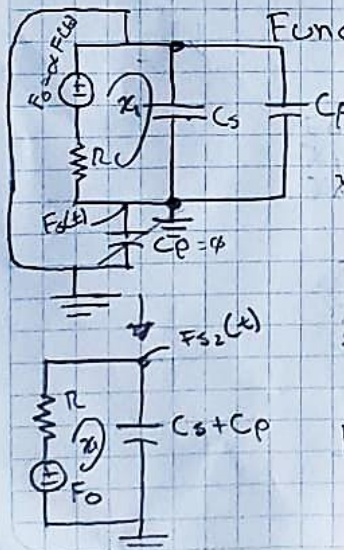 Func
F₀=αF(t)
x₁
R
Cs
Cp
Fs(t)
Cp=φ
Fs₂(t)
R
x₁
Cs+Cp
F₀